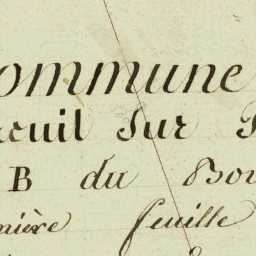 ommune
euil sur
B du Bou
nière feuille